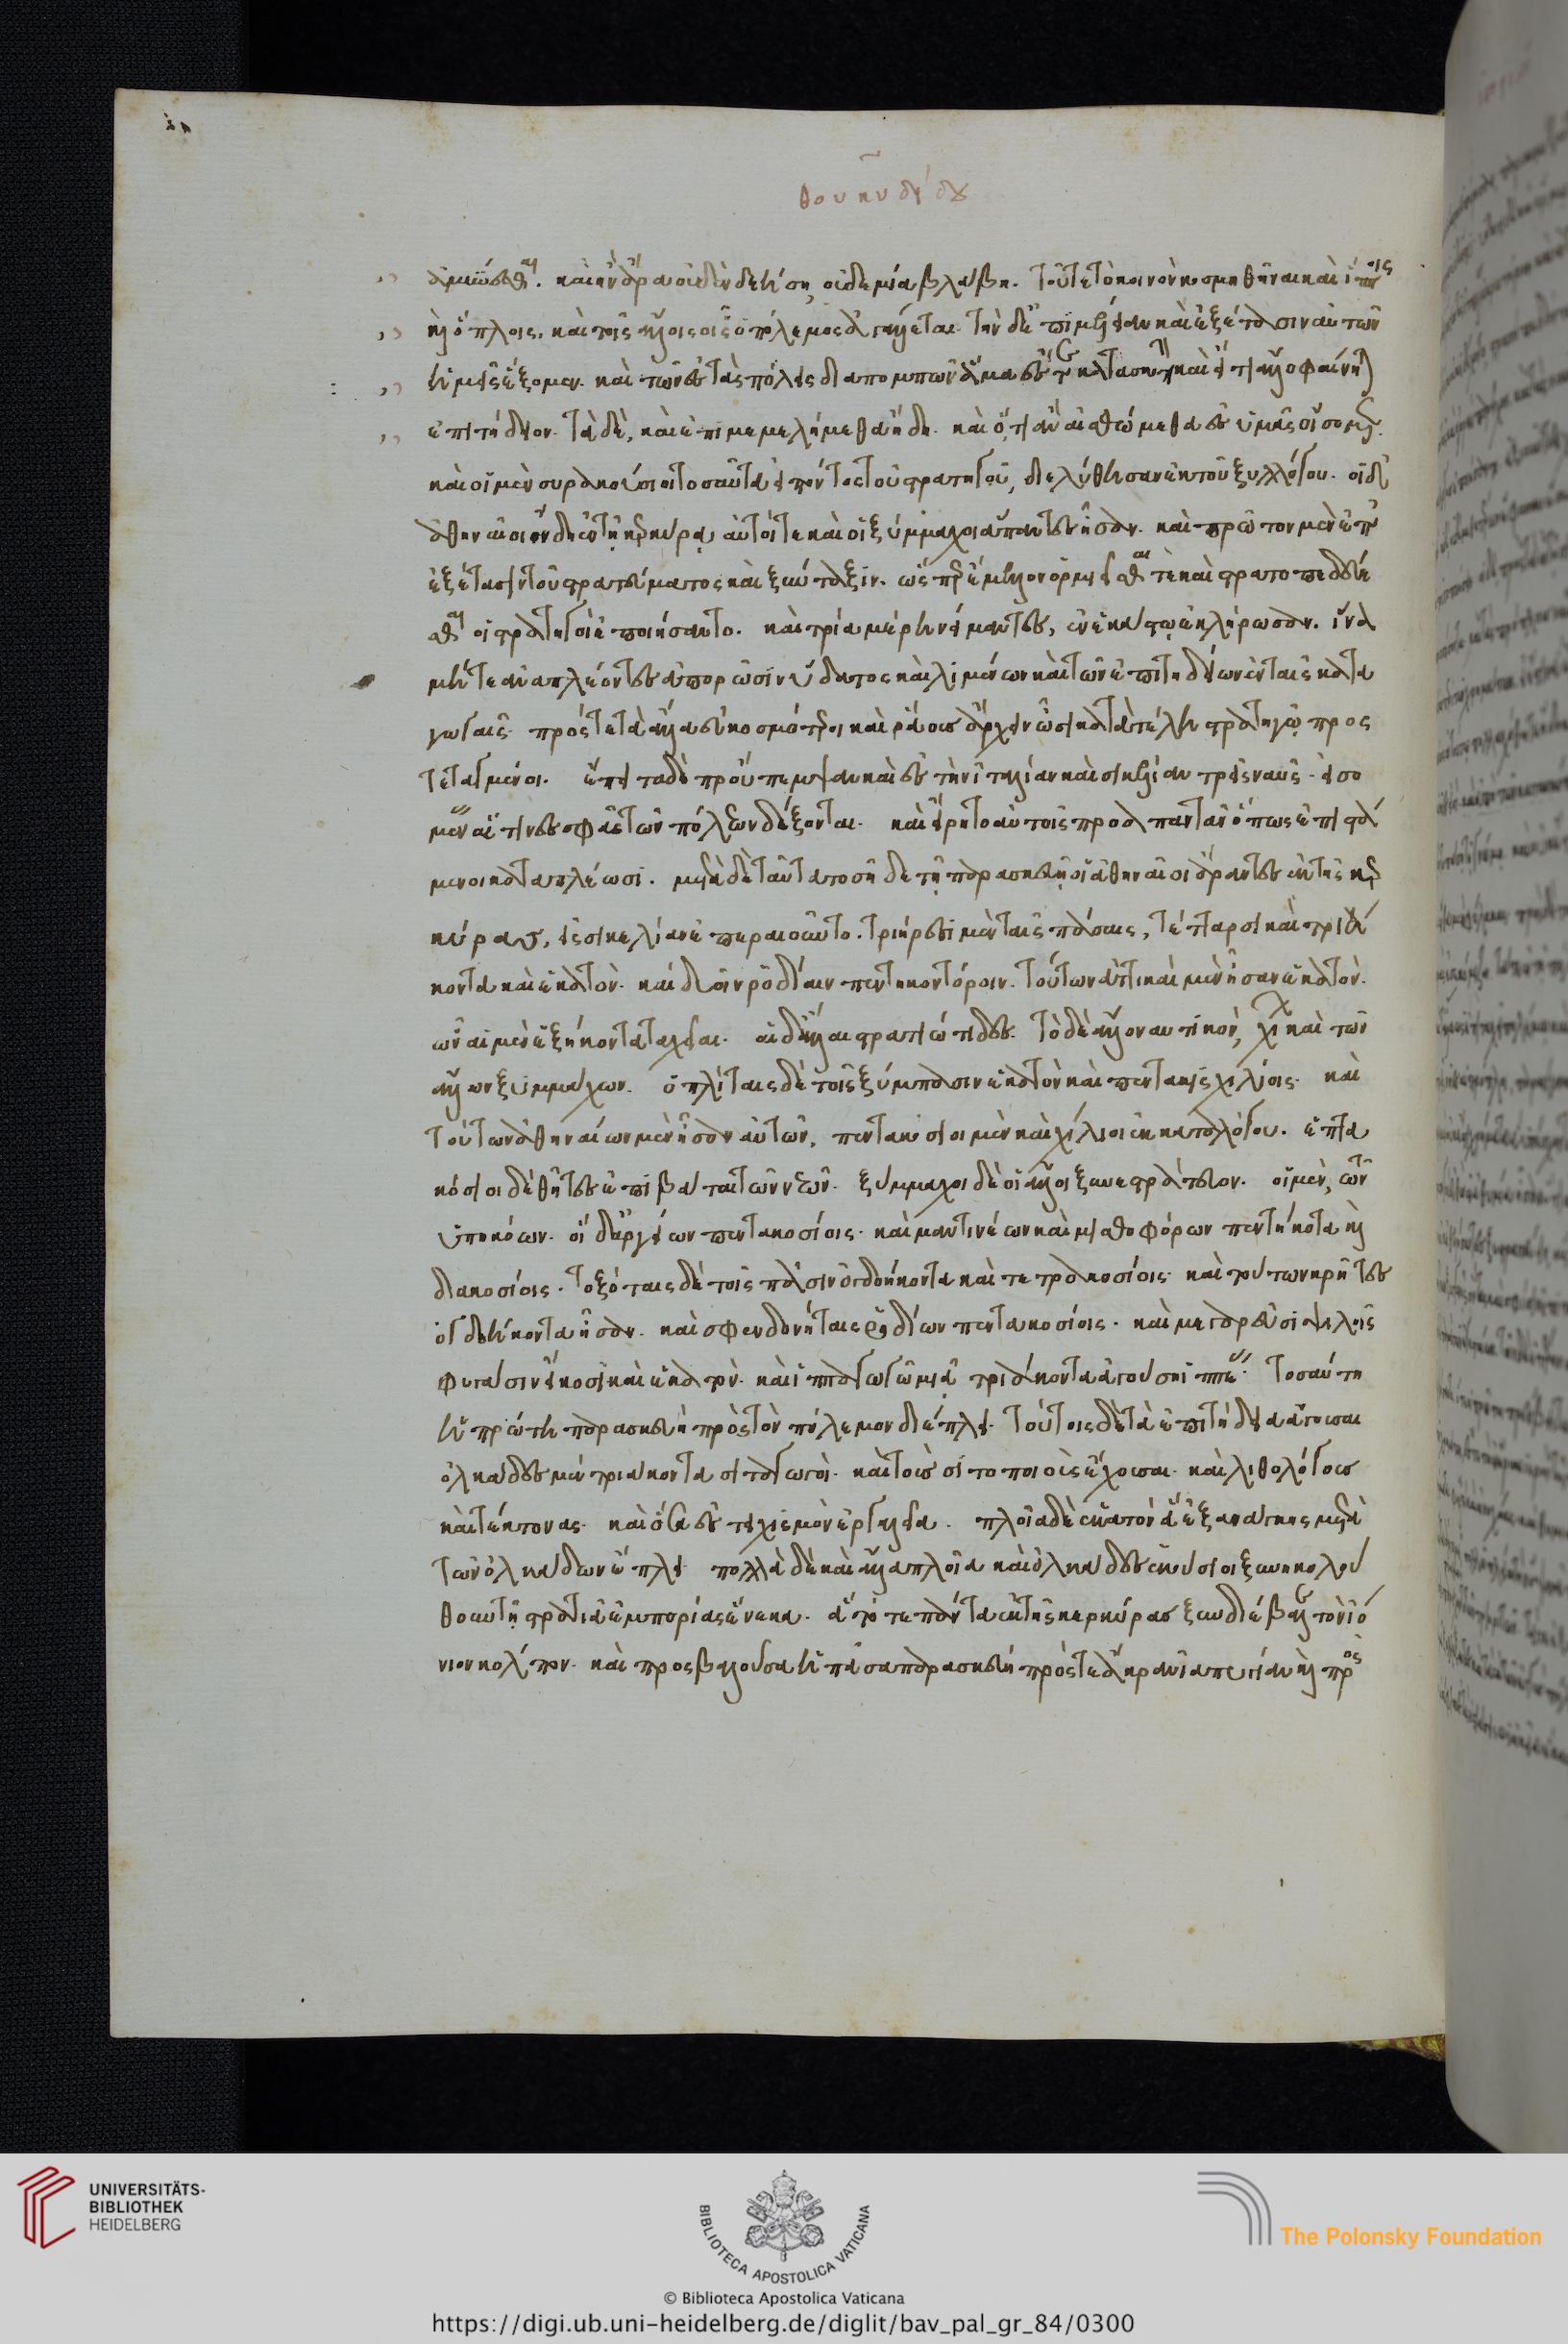 θουκυδίδου
ἀμύνεσθαι. καὶ ἢν ἄρα οὐδὲν δεήσῃ, οὐδεμία βλάβη. τοῦ τε τὸ κοινὸν κοσμηθῆναι καὶ ἵπποις
καὶ ὅπλοις. καὶ τοῖς ἄλλοις οἷς ὁ πόλεμος ἀγάλλεται. τὴν δ' ἐπιμέλειαν καὶ ἐξέτασιν αὐτῶν
ἡμεῖς ἕξομεν. καὶ τῶν ἐς τὰς πόλεις διαπομπῶν ἅμα ἔς τε κατασκοπὴν καὶ ἤν τι ἄλλο φαίνηται
ἐπιτήδειον. τὰ δὲ, καὶ ἐπιμεμελήμεθα ἤδη. καὶ ὅ,τι ἂν αἰσθώμεθα ἐς ὑμᾶς οἴσομεν.
καὶ οἱ μὲν συρακούσιοι τοσαῦτα εἰπόντος τοῦ στρατηγοῦ, διελύθησαν ἐκ τοῦ ξυλλόγου. οἱ δ'
ἀθηναῖοι ἤδη ἐν τῇ κερκύρᾳ αὐτοί τε καὶ οἱ ξύμμαχοι ἅπαντες ἦσαν. καὶ πρῶτον μὲν ἐπ'
ἐξέτασιν τοῦ στρατεύματος καὶ ξύνταξιν. ὡσπερ ἔμελλον ὁρμιεῖσθαι τε καὶ στρατοπεδεύε
σθαι οἱ στρατηγοὶ ἐποιήσαντο. καὶ τρία μέρη νείμαντες, ἓν ἑκάστῳ ἐκλήρωσαν. ἵνα
μήτε ἅμα πλέοντες ἀπορῶσιν ὕδατος καὶ λιμένων καὶ τῶν ἐπιτηδείων ἐν ταῖς κατα
γωγαῖς. πρός τε τὰ ἄλλα εὐκοσμότεροι καὶ ῥᾴους ἄρχειν ὦσι κατὰ τέλη στρατηγῷ προσ
τεταγμένοι. ἔπειτα δὲ προὔπεμψαν καὶ ἐς τὴν ἰταλίαν καὶ σικελίαν τρεῖς ναῦς. εἰσο
μένας αἵτινες σφᾶς τῶν πόλεων δέξονται. καὶ εἴρητο αὐτοῖς προαπαντᾶν ὅπως ἐπιστά
μενοι καταπλέωσι. μετὰ δὲ ταῦτα τοσῇδε τῇ παρασκευῇ οἱ ἀθηναῖοι ἄραντες ἐκ τῆς κερ
κύρας, ἐς σικελίαν ἐπεραιοῦντο. τριήρεσι μὲν ταῖς πάσαις, τέτταρσι καὶ τριά
κοντα καὶ ἑκατὸν. καὶ δυοῖν ῥοδίαιν πεντηκοντόροιν. τούτων ἀττικαὶ μὲν ἦσαν ἑκατὸν.
ὧν αἱ μὲν ἑξήκοντα ταχεῖαι. αἱ δ' ἄλλαι στρατιώτιδες. τὸ δὲ ἄλλο ναυτικὸν, χίων καὶ τῶν
ἄλλων ξυμμάχων. ὁπλίταις δὲ τοῖς ξύμπασιν ἑκατὸν καὶ πεντακισχιλίοις. καὶ
τούτων ἀθηναίων μὲν ἦσαν αὐτῶν, πεντακόσιοι μὲν καὶ χίλιοι ἐκ καταλόγου. ἑπτα
κόσιοι δὲ θῆτες ἐπιβάται τῶν νεῶν. ξύμμαχοι δὲ οἱ ἄλλοι ξυνεστράτευον. οἱ μὲν, τῶν
ὑπηκόων. οἱ δ' ἀργείων πεντακοσίοις. καὶ μαντινέων καὶ μισθοφόρων πεντήκοντα καὶ
διακοσίοις. τοξόταις δὲ τοῖς πᾶσιν ὀγδοήκοντα καὶ τετρακοσίοις. καὶ τούτων κρῆτες
ὀγδοήκοντα ἦσαν. καὶ σφενδονήταις ῥοδίων πεντακοσίοις. καὶ μεγαρεῦσι ψιλοῖς
φυγάσιν εἴκοσι καὶ ἑκατὸν. καὶ ἱππαγωγῷ μιᾷ τριάκοντα ἀγούσῃ ἱππέας. τοσαύτη
ἡ πρώτη παρασκευὴ πρὸς τὸν πόλεμον διέπλει. τούτοις δὲ τὰ ἐπιτήδεια ἄγουσαι
ὁλκάδες μὲν τριάκοντα σιταγωγοὶ. καὶ τοὺς σιτοποιοὺς ἔχουσαι. καὶ λιθολόγους
καὶ τέκτονας. καὶ ὅσα ἐς τειχισμὸν ἐργαλεῖα. πλοῖα δὲ ἑκατὸν ἃ ἐξ ἀνάγκης μετὰ
τῶν ὁλκάδων ἔπλει. πολλὰ δὲ καὶ ἄλλα πλοῖα καὶ ὁλκάδες ἑκούσιοι ξυνηκολού
θουν τῇ στρατιᾷ ἐμπορίας ἕνεκα. ἃ τότε πάντα ἐκ τῆς κερκύρας ξυνδιέβαλλε τὸν ἰό
νιον κόλπον. καὶ προσβαλοῦσα ἡ πᾶσα παρασκευὴ πρός τε ἄκραν ἰαπυγίαν καὶ πρὸς
UNIVERSITÄTS-
BIBLIOTHEK
HEIDELBERG
BIBLIOTECA APOSTOLICA VATICANA
The Polonsky Foundation
© Biblioteca Apostolica Vaticana
https://digi.ub.uni-heidelberg.de/diglit/bav_pal_gr_84/0300